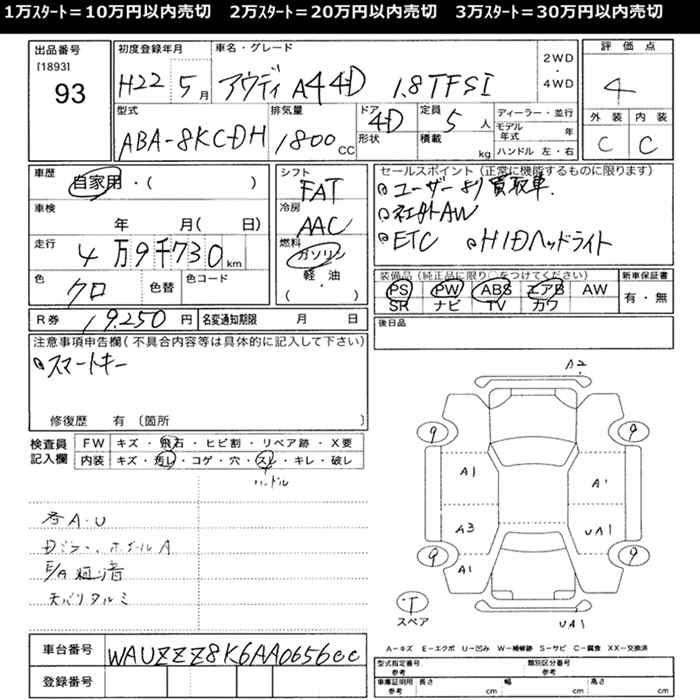 1万スタート＝10万円以内売切　2万スタート＝20万円以内売切　3万スタート＝30万円以内売切
出品番号
[1893]
93
初度登録年月
H22 5月
車名・グレード
アウディ A4 4D 1.8TFSI
2WD
・
4WD
評価点
4
外装 内装
C C
型式
ABA-8KCDH
排気量
1800cc
ドア 4D
形状
定員 5人
積載 kg
ディーラー・並行
モデル年式 年
ハンドル 左・右
車歴
自家用・( )
車検
年 月( 日)
走行
4万9千730km
色
クロ
色替
色コード
シフト
FAT
冷房
AAC
燃料
ガソリン
軽・油
( ・ )
セールスポイント (正常に機能するものに限ります)
ユーザーより買取車.
社外AW
ETC HIDヘッドライト
装備品 (純正品に限り○をつけてください)
PS PW ABS エアB AW
SR ナビ TV カワ
新車保証書
有・無
R券 19.250円
名変通知期限 月 日
後日品
注意事項申告欄(不具合内容等は具体的に記入して下さい)
スマートキー
修復歴 有〔箇所 〕
検査員
記入欄
FW キズ・飛石・ヒビ割・リペア跡・X要
内装 キズ・汚レ・コゲ・穴・スレ・キレ・破レ
ハンドル
各A・U
ホイールA
天バリタルミ
A2
9 9
A1 A1
A3 UA1
9 9
A1
T
スペア
UA1
A－キズ E－エクボ U－凹み W－補修跡 S－サビ C－腐食 XX－交換済
車台番号 WAUZZZ8K6AA0656cc
登録番号
型式指定番号
参考
類別区分番号
参考
車庫証明用
参考
長さ cm
幅 cm
高さ cm